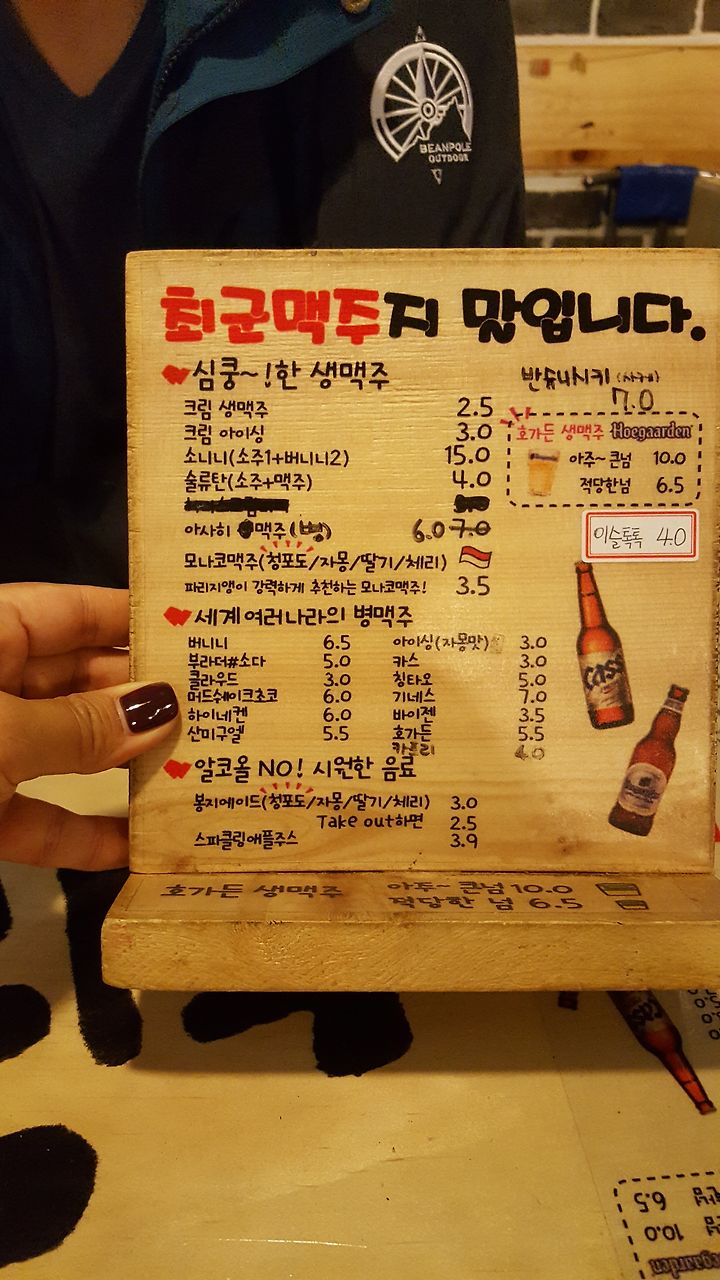 BEANPOLE
OUTDOOR
최군맥주지 말입니다.
심쿵~!한 생맥주
크림 생맥주 2.5
크림 아이싱 3.0
소니니(소주1+버니니2) 15.0
술류탄(소주+맥주) 4.0
아사히 맥주(병) 6.0 7.0
모나코맥주(청포도/자몽/딸기/체리)
파리지앵이 강력하게 추천하는 모나코맥주! 3.5
반슈나시키 (사케)
7.0
호가든 생맥주 Hoegaarden
아주~ 큰넘 10.0
적당한넘 6.5
이슬톡톡 4.0
세계 여러나라의 병맥주
버니니 6.5
부라더#소다 5.0
클라우드 3.0
머드쉐이크초코 6.0
하이네켄 6.0
산미구엘 5.5
아이싱(자몽맛) 3.0
카스 3.0
칭타오 5.0
기네스 7.0
바이젠 3.5
호가든 5.5
카프리 4.0
CASS
알코올 NO! 시원한 음료
봉지에이드(청포도/자몽/딸기/체리) 3.0
Take out하면 2.5
스파클링애플주스 3.9
호가든 생맥주 아주~ 큰넘 10.0
적당한 넘 6.5
6.5
10.0
Hoegaarden